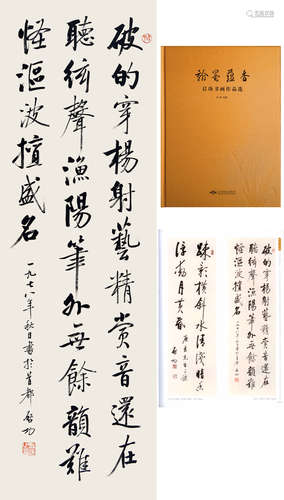 破的穿楊射藝精賞音還在
聽絃聲漁陽筆外無餘韻難
怪漚波擅盛名
一九七八年秋日書於首都 啟功
翰墨蘊香
启功书画作品选
破的穿楊射藝精賞音還在
聽絃聲漁陽筆外無餘韻難
怪漚波擅盛名
疎影橫斜水清淺暗香
浮動月黃昏
啟功